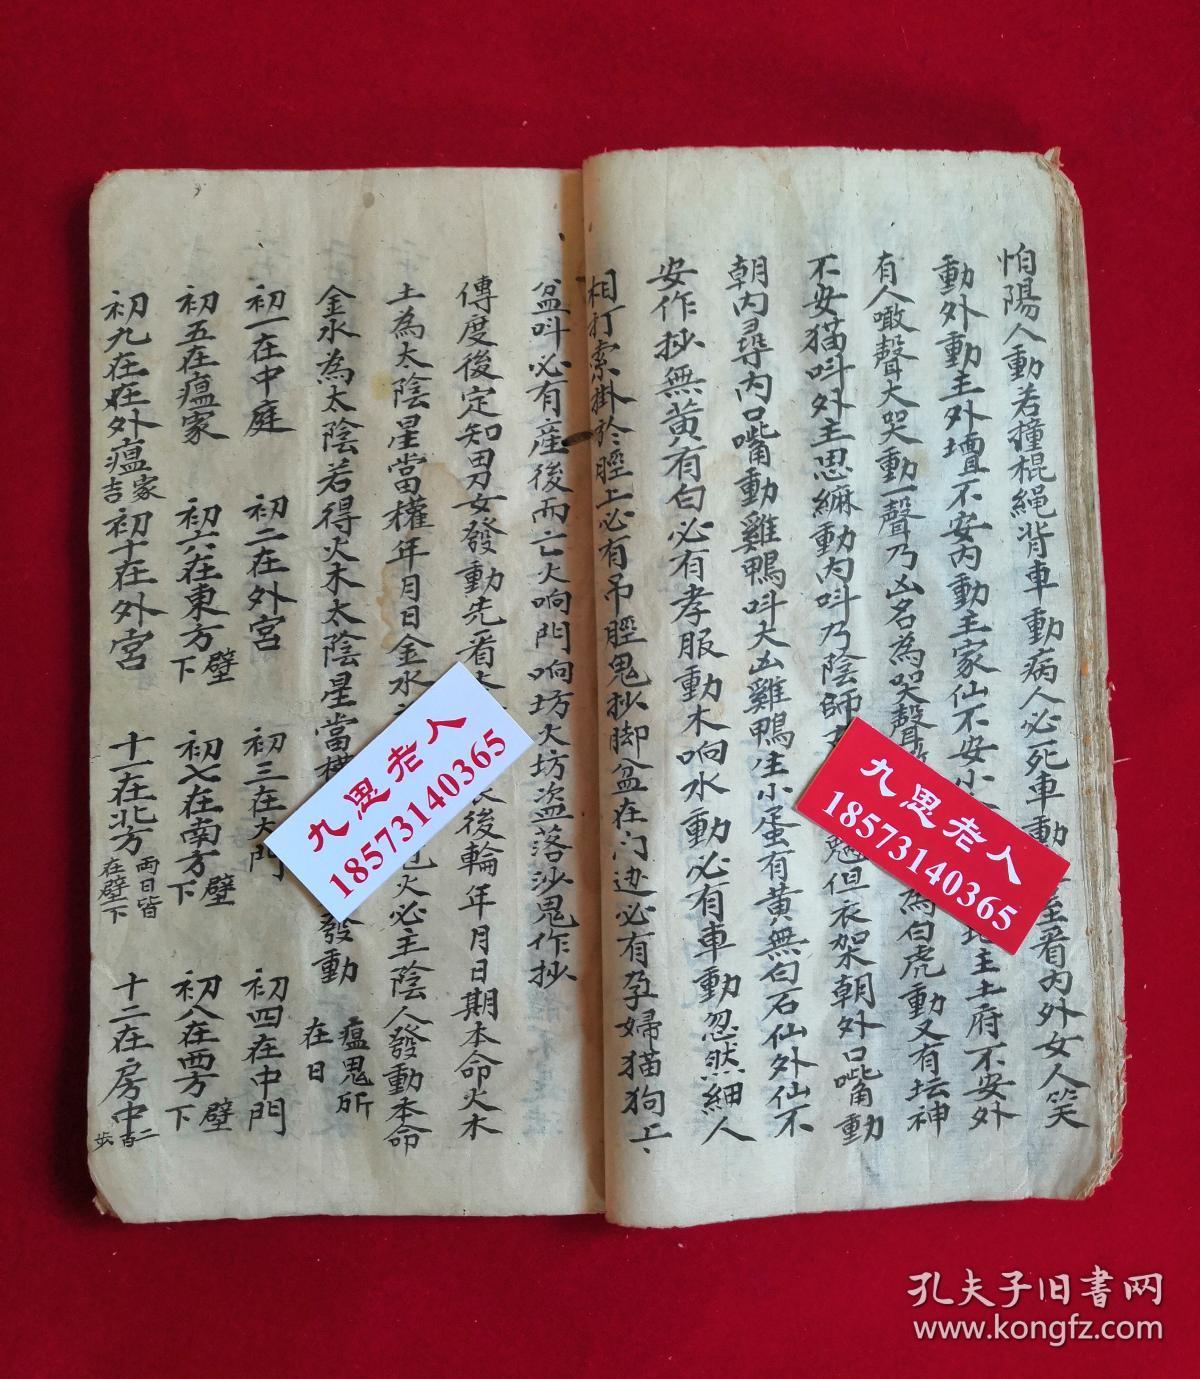 怕陽人動若撞棍繩背車動病人必死車動 看內外女人笑
動外動主外壇不安內動主家仙不安小 地主土府不安外
有人噉聲大哭動一聲乃凶名為哭聲 為白虎動又有坛神
不安猫呌外主思麻動內呌乃陰師 但衣架朝外口嘴動
朝內尋內口嘴動雞鴨呌大凶雞鴨生小蛋有黃無白石仙外仙不
安作抄無黃有白必有孝服動木响水動必有車動忽然細人
相打索掛於脛上必有吊脛鬼抄脚盆在门边必有孕婦猫狗上
盆呌必有產後而亡火响門响坊火坊盗落沙鬼作抄
傳度後定知男女發動先看 後輪年月日期本命火木
土為太陰星當權年月日金水 火必主陰人發動本命
金水為太陰若得火木太陰星當權 發動 瘟鬼所在日
初一在中庭 初二在外宮 初三在大門 初四在中門
初五在瘟家 初六在東方壁下 初七在南方壁下 初八在西方壁下
初九在在外瘟家吉 初十在外宮 十一在北方兩日皆在壁下 十二在房中二百步
九思老人
18573140365
九思老人
18573140365
孔夫子旧书网
www.kongfz.com